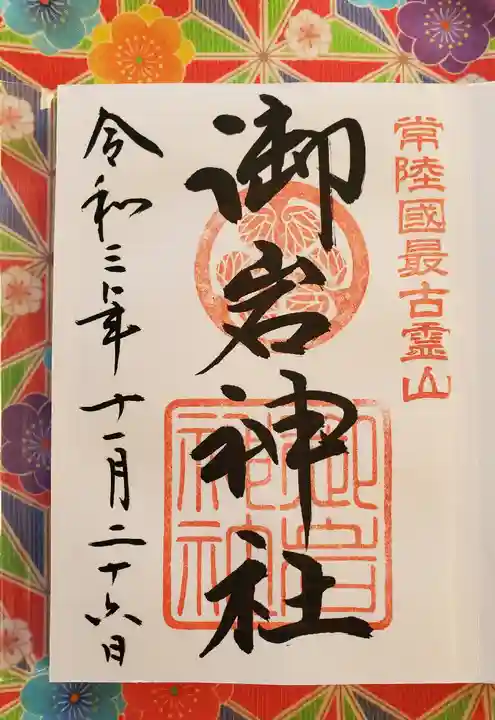 常陸國最古霊山
御岩神社
御岩神社
令和三年十一月二十六日